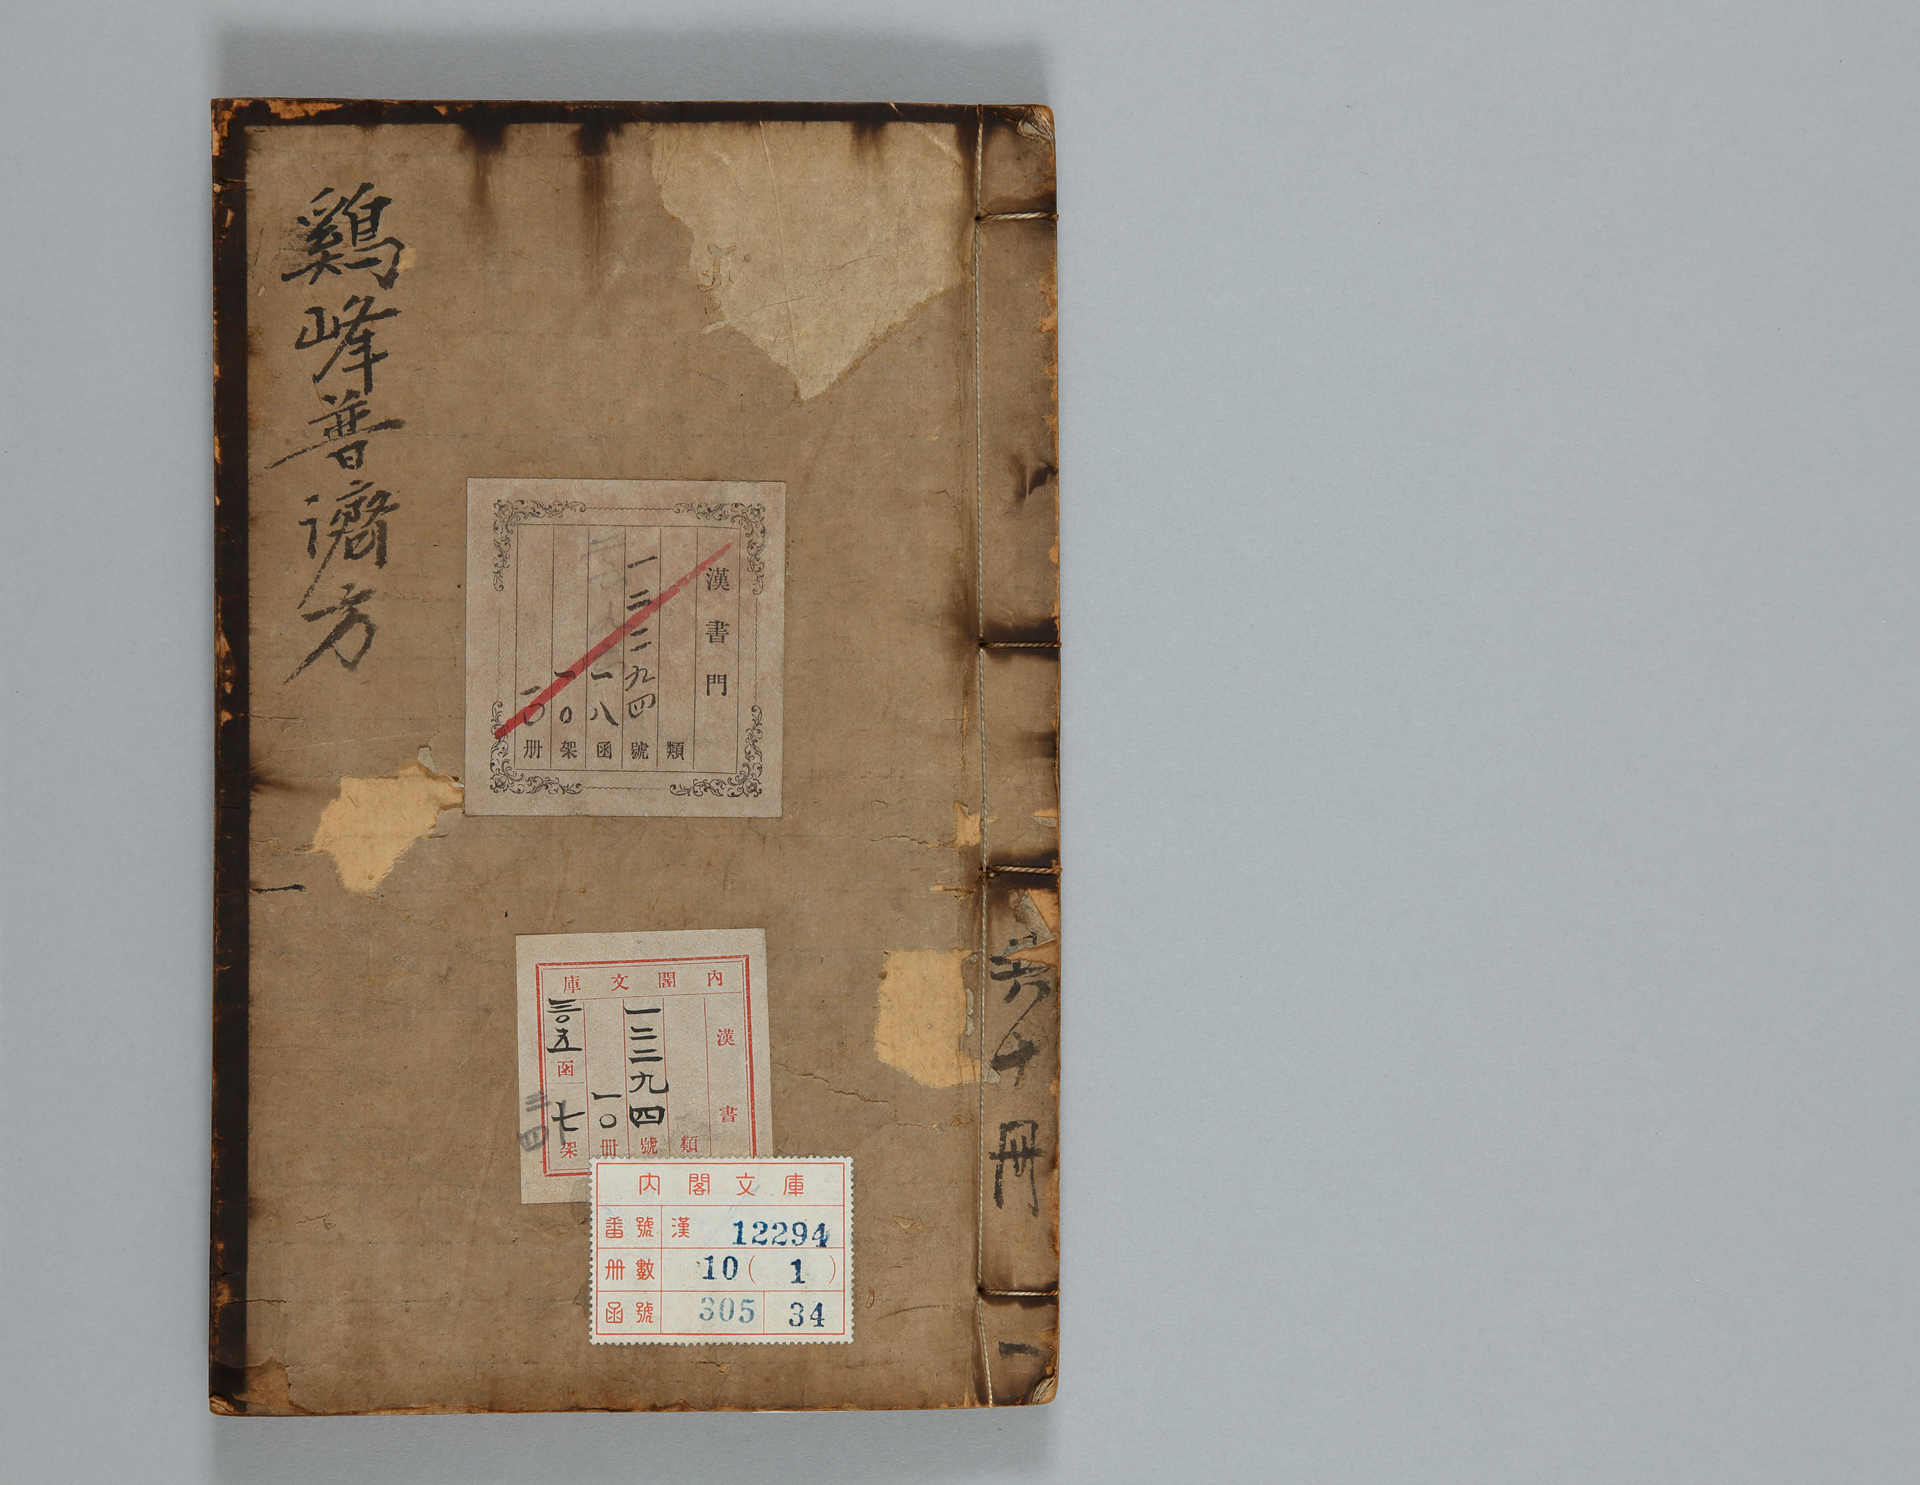 鷄峰普濟方
一
漢書門
類
一二二九四號
一八函
一〇架
一〇册
內閣文庫
漢書
類
一二二九四號
一〇冊
三〇五函七架
三四
内閣文庫
番號 漢 12294
冊數 10(1)
函號 305 34
共十冊
一